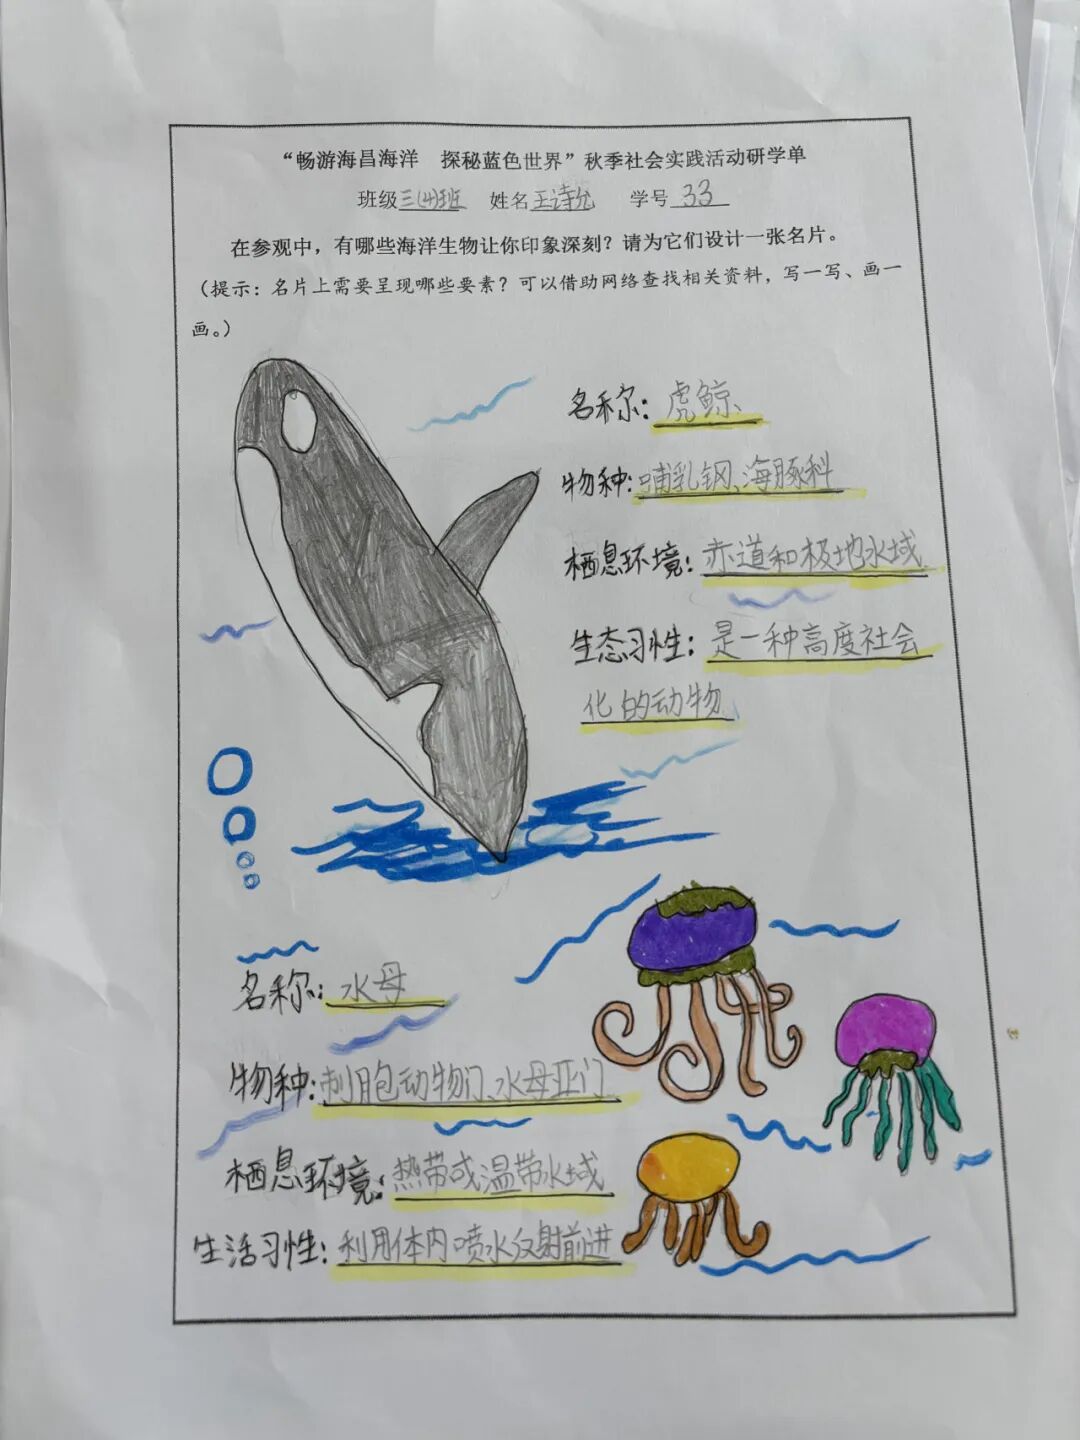 “畅游海昌海洋 探秘蓝色世界”秋季社会实践活动研学单
班级三(4)班 姓名王诗允 学号33
在参观中，有哪些海洋生物让你印象深刻？请为它们设计一张名片。
（提示：名片上需要呈现哪些要素？可以借助网络查找相关资料，写一写、画一
画。）
名称：虎鲸
物种：哺乳钢、海豚科
栖息环境：赤道和极地水域
生态习性：是一种高度社会
化的动物
名称：水母
物种：刺胞动物门、水母亚门
栖息环境：热带或温带水域
生活习性：利用体内喷水反射前进